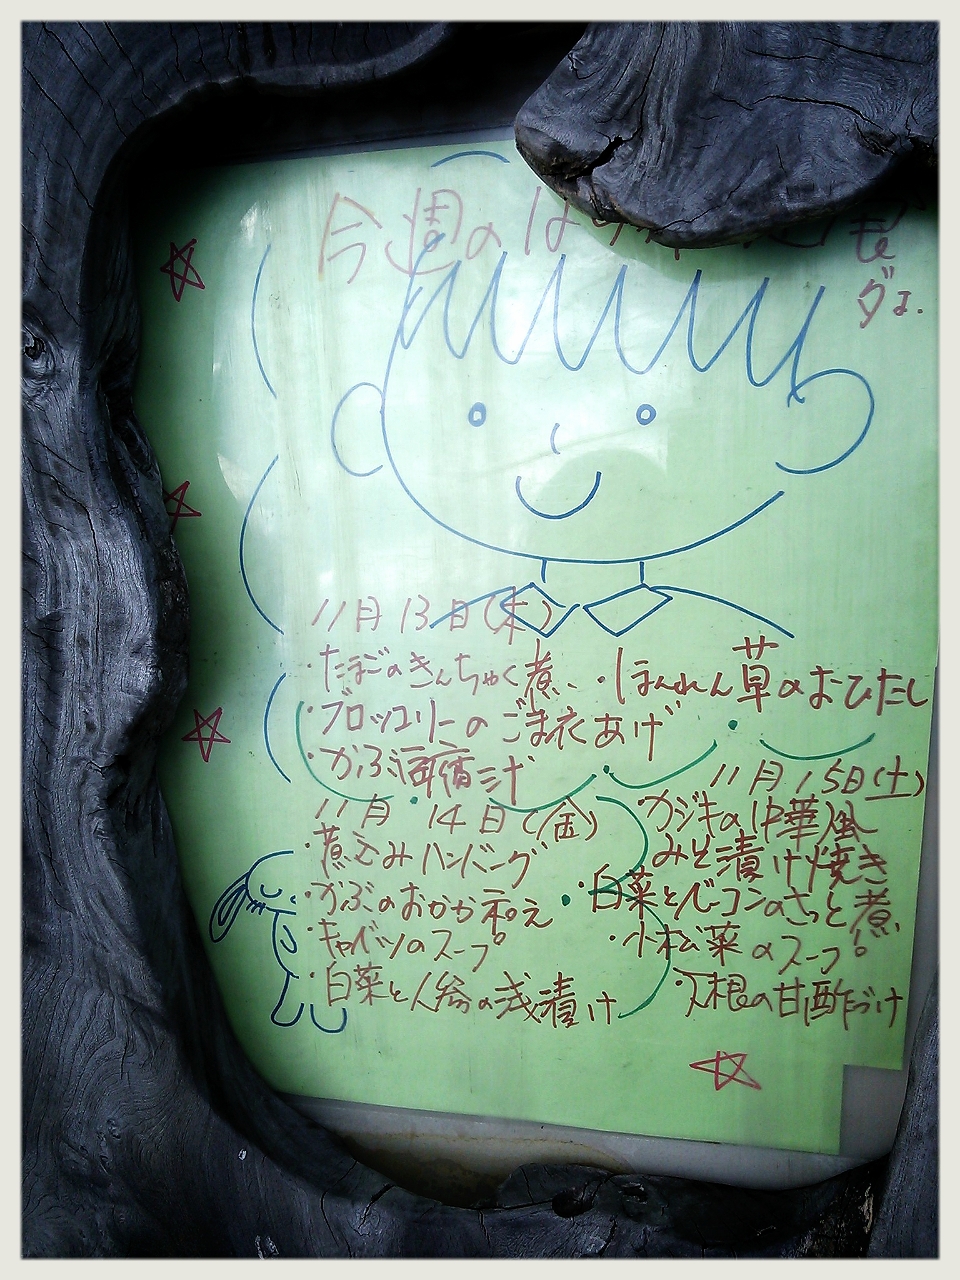 今週の
11月13日(木)
・たまごのきんちゃく煮
・ほうれん草のおひたし
・ブロッコリーのごま衣あげ
・かぶ
11月14日(金)
・煮込みハンバーグ
・かぶのおかか和え
・キャベツのスープ
・白菜と人参の浅漬け
11月15日(土)
・カジキの中華風
みそ漬け焼き
・白菜とベーコンのさっと煮
・小松菜のスープ
・大根の甘酢づけ